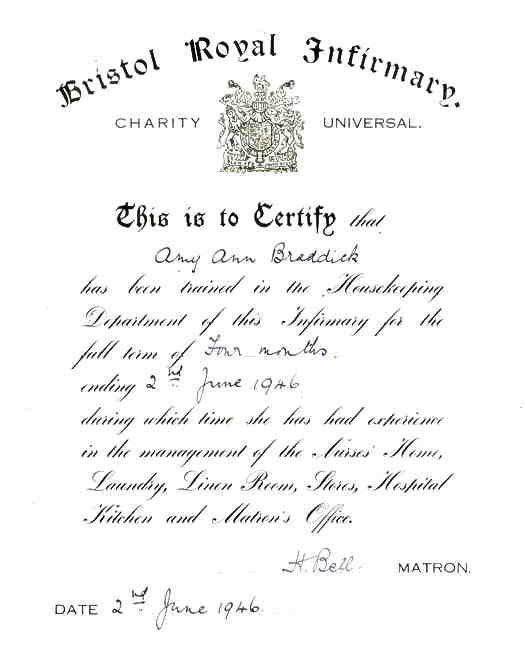 Bristol Royal Infirmary.
CHARITY UNIVERSAL.
This is to Certify that
Amy Ann Braddick
has been trained in the Housekeeping
Department of this Infirmary for the
full term of Four months.
ending 2nd June 1946
during which time she has had experience
in the management of the Nurses' Home,
Laundry, Linen Room, Stores, Hospital
Kitchen and Matron's Office.
H. Bell. MATRON.
DATE 2nd June 1946.